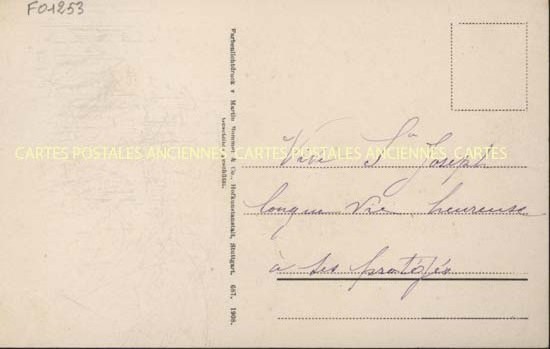 F01253
Farbenlichtdruck v Martin Rommel & Co., Hofkunstanstalt, Stuttgart. 687. 1908.
CARTES POSTALES ANCIENNES CARTES POSTALES ANCIENNES CARTES
Vive St Joseph
longue vie heureuse
à ses protégés